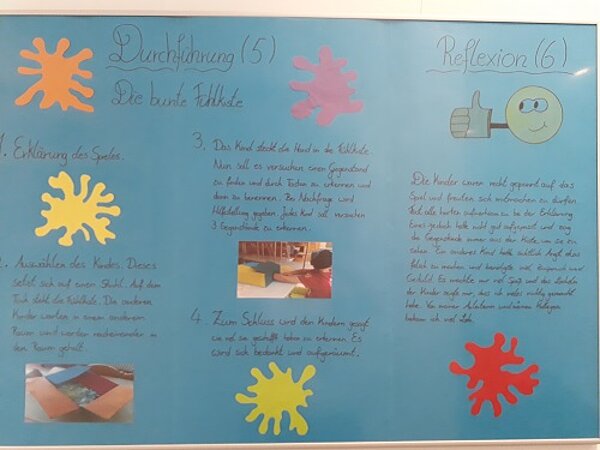 Durchführung (5)
Die bunte Fühlkiste
1. Erklärung des Spieles.
2. Auswählen des Kindes. Dieses
setzt sich auf einen Stuhl. Auf dem
Tisch steht die Fühlkiste. Die anderen
Kinder warten in einem anderen
Raum und werden nacheinander in
den Raum geholt.
3. Das Kind steckt die Hand in die Fühlkiste.
Nun soll es versuchen einen Gegenstand
zu finden und durch Tasten zu erkennen und
dann zu benennen. Bei Nachfrage wird
Hilfestellung gegeben. Jedes Kind soll versuchen
3 Gegenstände zu erkennen.
4. Zum Schluss wird den Kindern gesagt
wie viel sie geschafft haben zu erkennen. Es
wird sich bedankt und aufgeräumt.
Reflexion (6)
Die Kinder waren recht gespannt auf das
Spiel und freuten sich mitmachen zu dürfen.
Fast alle hörten aufmerksam zu bei der Erklärung.
Eines jedoch hatte nicht gut aufgepasst und zog
die Gegenstände immer aus der Kiste, um sie zu
sehen. Ein anderes Kind hatte sichtlich Angst etwas
falsch zu machen und benötigte viel Zuspruch und
Geduld. Es machte mir viel Spaß und das Lächeln
der Kinder zeigte mir, dass ich vieles richtig gemacht
habe. Von meiner Anleiterin und meinen Kollegen
bekam ich viel Lob.